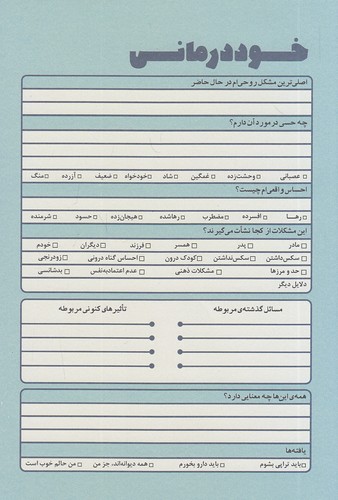 خوددرمانی
اصلی‌ترین مشکل روحی‌ام در حال حاضر
چه حسی در مورد آن دارم؟
عصبانی □ وحشت‌زده □ غمگین □ شاد □ خودخواه □ ضعیف □ آزرده □ منگ □
احساس واقعی‌ام چیست؟
رها □ افسرده □ مضطرب □ رهاشده □ هیجان‌زده □ حسود □ شرمنده □
این مشکلات از کجا نشأت می‌گیرند؟
مادر □ پدر □ همسر □ فرزند □ دیگران □ خودم □
سکس‌داشتن □ سکس‌نداشتن □ کودک درون □ احساس گناه درونی □ زودرنجی □
حد و مرزها □ مشکلات ذهنی □ عدم اعتمادبه‌نفس □ بدشانسی □
دلایل دیگر
مسائل گذشته‌ی مربوطه
تأثیرهای کنونی مربوطه
همه‌ی این‌ها چه معنایی دارد؟
یافته‌ها
باید تراپی بشوم □ باید دارو بخورم □ همه دیوانه‌اند، جز من □ من حالم خوب است □